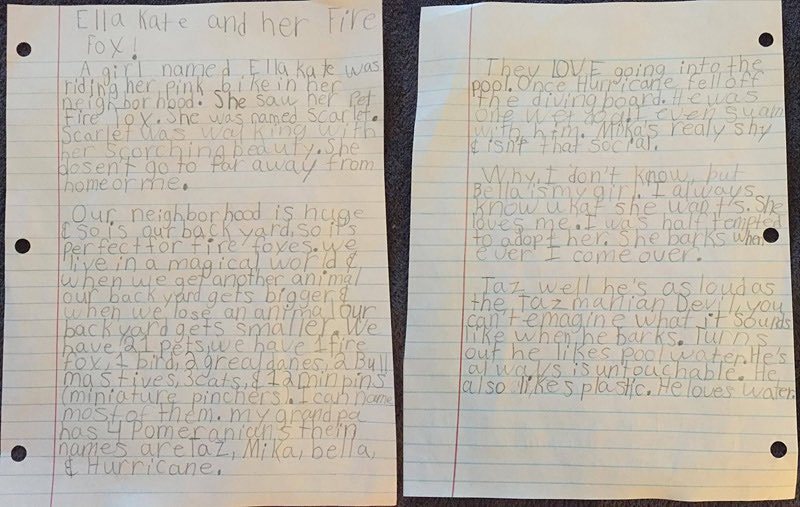 Ella Kate and her Fire
Fox!
A girl named Ella Kate was
riding her pink bike in her
neighborhood. She saw her Pet
Fire Fox. She was named Scarlet.
Scarlet was walking with
her scorching beauty. She
dosen't go to far away from
home or me.
Our neighborhood is huge
& so is out back yard, so it's
perfect for fire foxes. We
live in a magical world &
when we get another animal
our back yard gets bigger &
when we lose an animal our
back yard gets smaller. We
have 21 pets, we have 1 fire
fox, 1 bird, 2 great danes, 2 Bull
mastives, 3 cats, & 12 min pins
(miniature pinchers). I can name
most of them. my grandpa
has 4 Pomeranians their
names are Taz, Mika, bella,
& Hurricane.
They LOVE going into the
pool. Once Hurricane fell off
the diving board. He was
one wet dog. I even swam
with him. Mika's realy shy
& isn't that social.
Why, I don't know, but
Bella is my girl. I always
know what she wants. She
loves me. I was half tempted
to adopt her. She barks when
ever I come over.
Taz well he's as loud as
the Tazmanian Devil, you
can't emagine what it sounds
like when he barks. Turns
out he likes pool water. He's
always is untouchable. He
also likes plastic. He loves water.